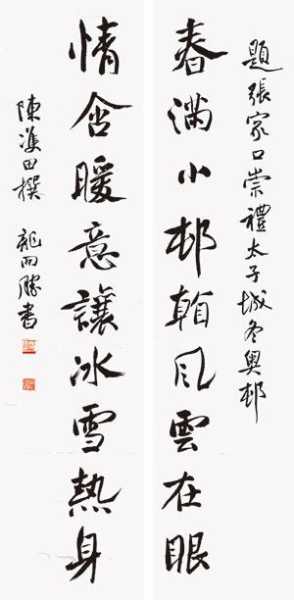 題張家口崇禮太子城冬奧邨
春滿小邨風雲在眼
情含暖意讓冰雪熱身
陳田撰 龍書